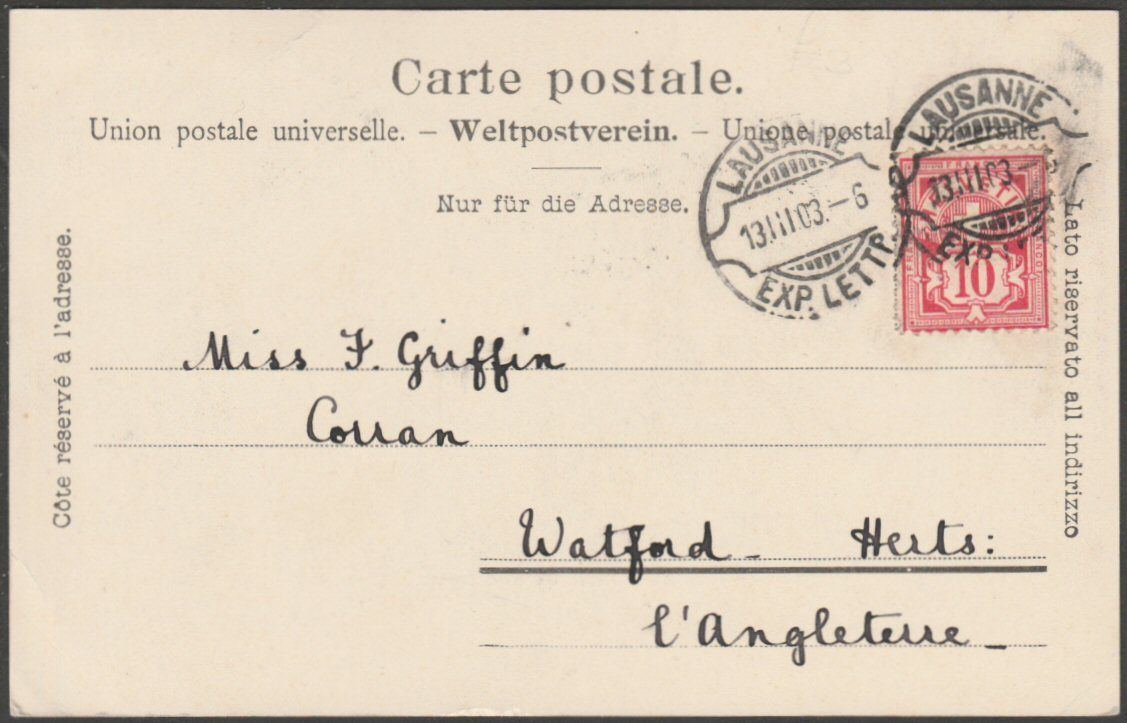 Carte postale.
Union postale universelle. – Weltpostverein. – Unione postale universale.
Nur für die Adresse.
Côte réservé à l'adresse.
LAUSANNE
13.III.03.–6
EXP. LETTR.
LAUSANNE
13.III.03.–
EXP.
FRANCO
10
Miss F. Griffin
Corran
Watford – Herts:
l'Angleterre –
Lato riservato all indirizzo